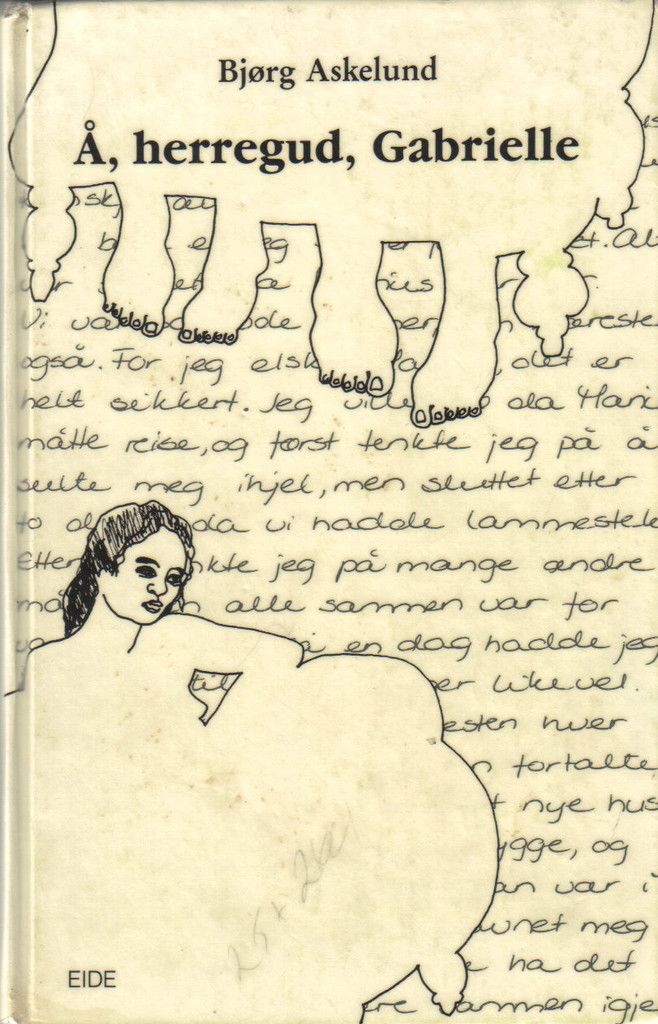 Bjørg Askelund
Å, herregud, Gabrielle
også. For jeg elsk det er
helt sikkert. Jeg ville da Hans
måtte reise, og først tenkte jeg på å
sulte meg ihjel, men sluttet etter
to da vi hadde lammestek
Etter nkte jeg på mange andre
må n alle sammen var for
en dag hadde jeg
til er likevel.
esten hver
n fortalte
t nye hus
ygge, og
an var i
unet meg
e ha det
re sammen igje
EIDE